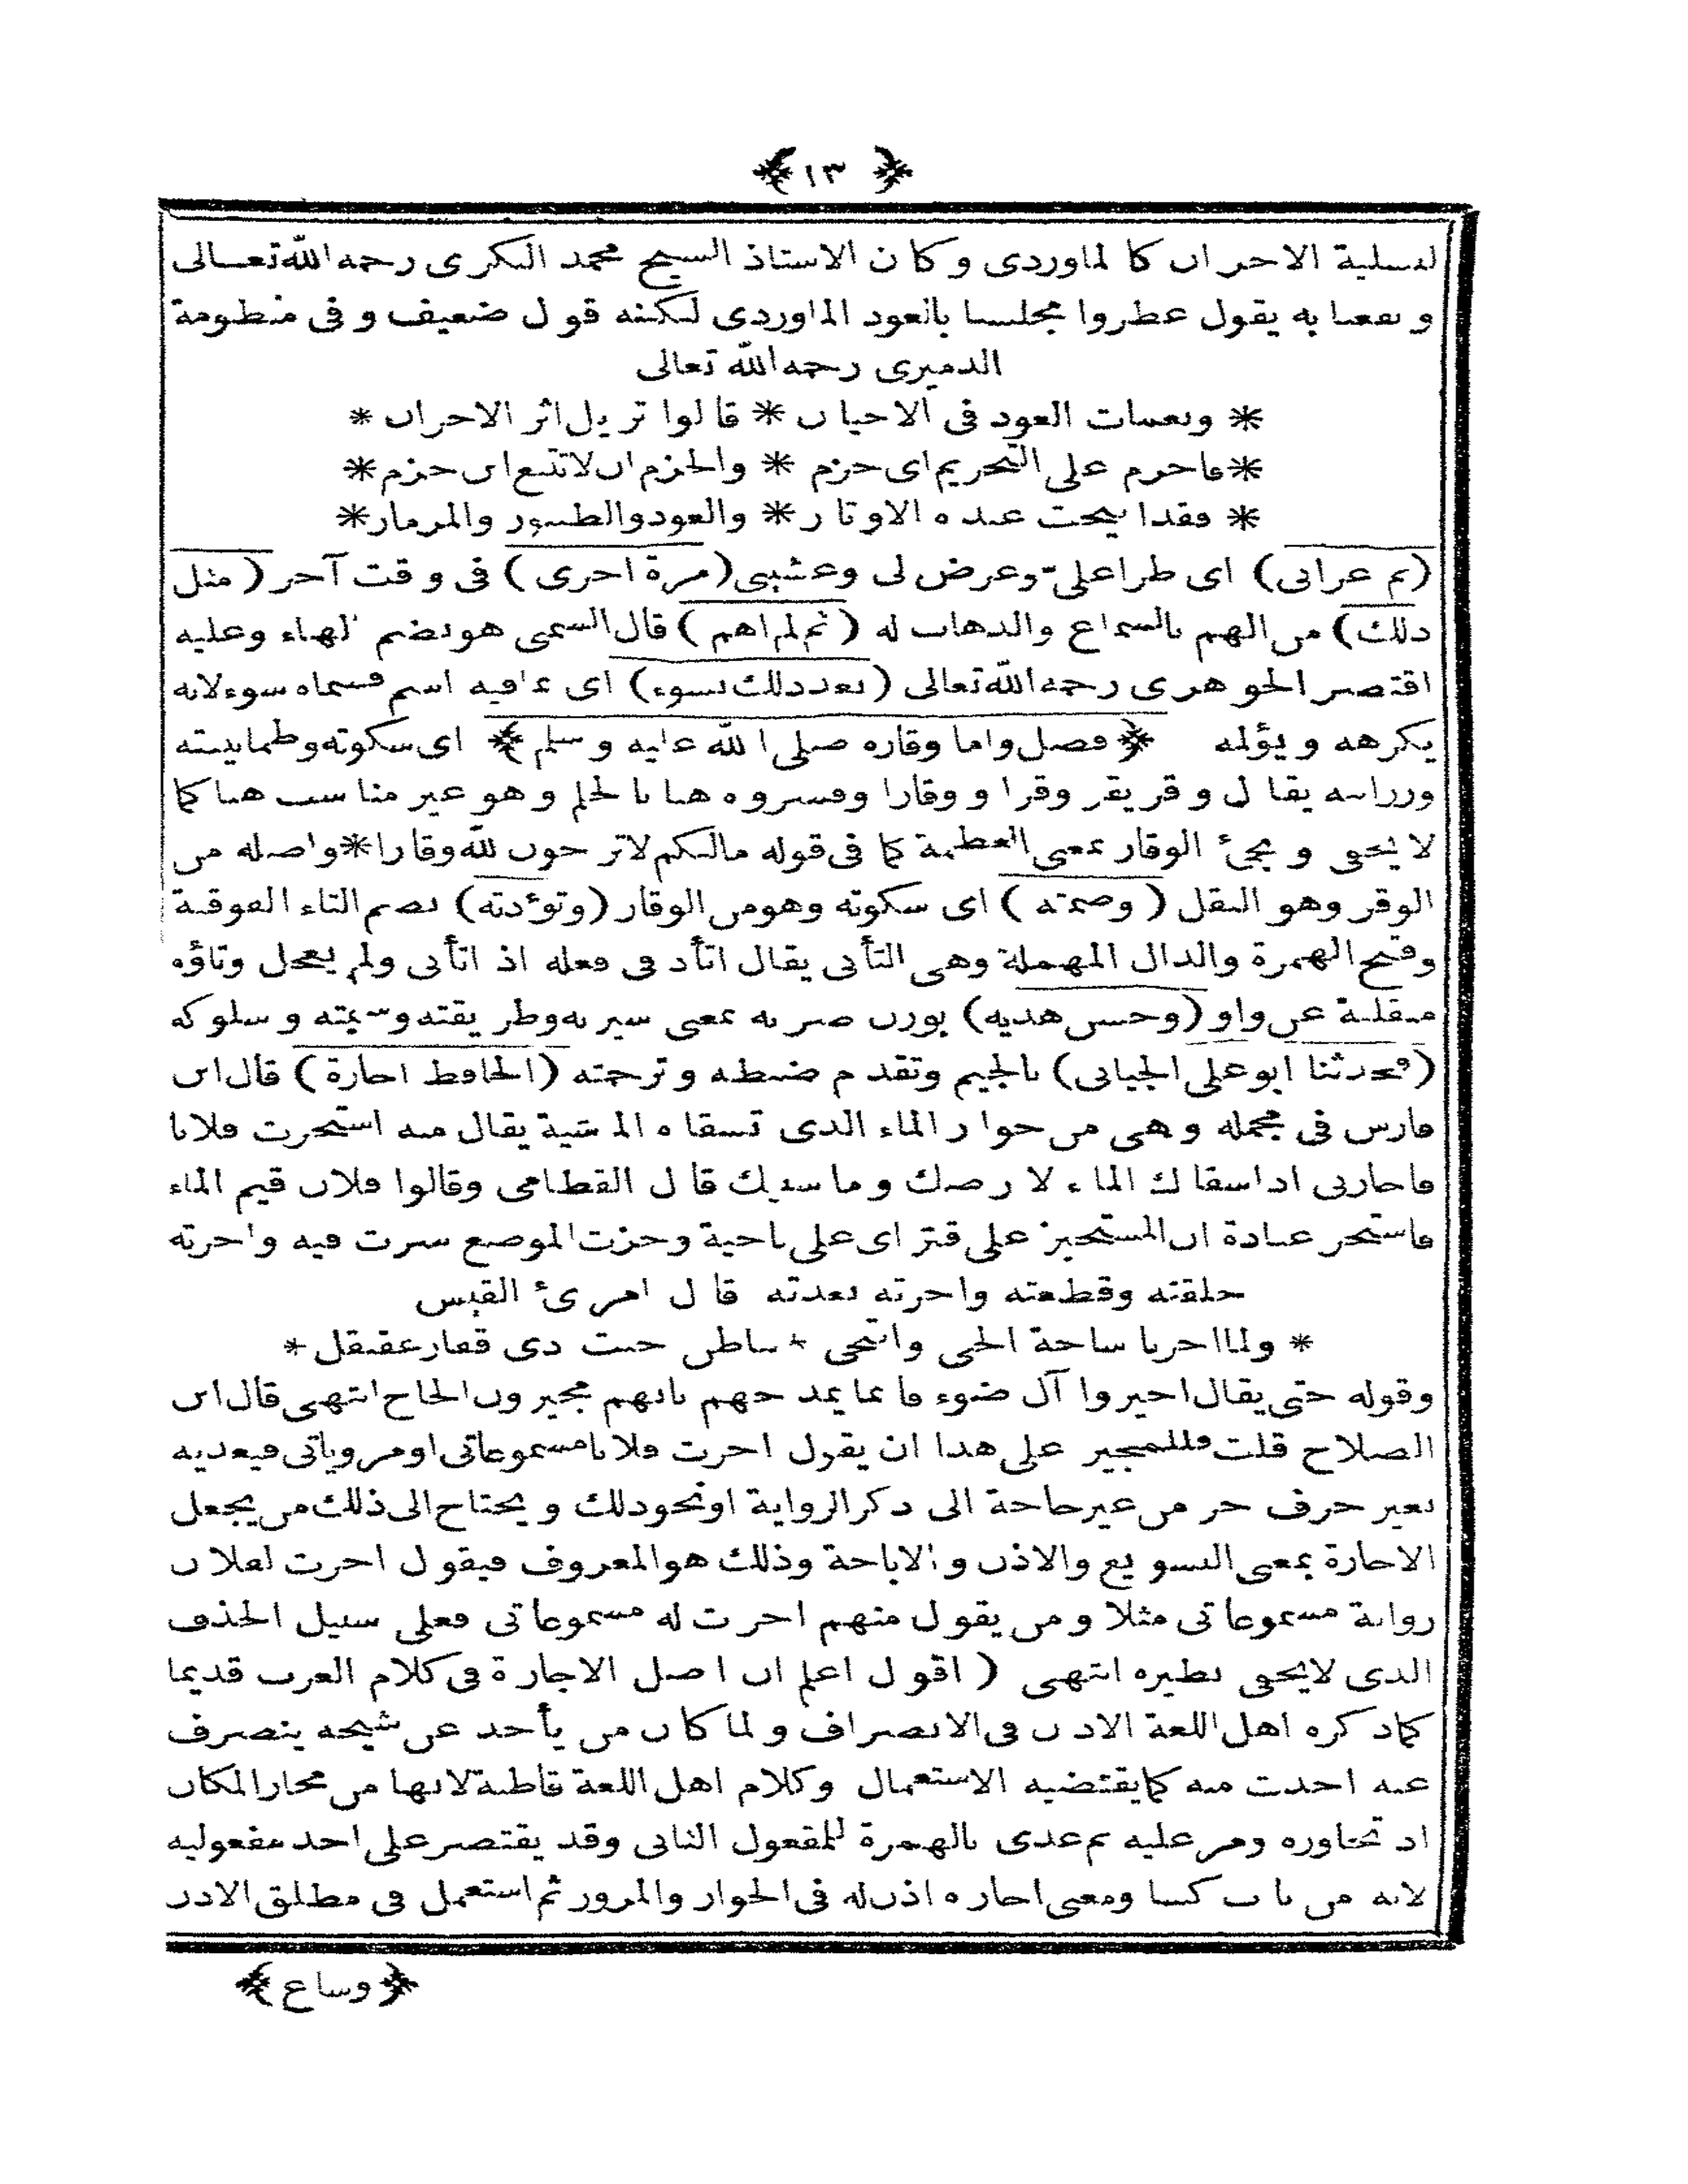 ﴿ ١٣ ﴾
لتسلية الاحزان كالماوردى وكان الاستاذ الشيخ محمد البكرى رحمه الله تعالى
ونفعنا به يقول عطروا مجلسنا بالعود الماوردى لكنه قول ضعيف وفى منظومة
الدميرى رحمه الله تعالى
* ونغمات العود فى الاحيان * قالوا تزيل اثر الاحزان *
* فاجزم على التحريم اى جزم * والحزم ان لا تتبع ابن حزم *
* فقد ابيحت عنده الاوتار * والعود والطنبور والمزمار *
(ثم عرانى) اى طرا علىّ وعرض لى وغشينى (مرة اخرى) فى وقت آخر (مثل
ذلك) من الهم بالسماع والذهاب له (ثم لم اهم) قال الشمنى هو بضم الهاء وعليه
اقتصر الجوهرى رحمه الله تعالى (بعد ذلك بسوء) اى ما فيه اسم فسماه سوء لانه
يكرهه ويؤلمه ﴿ فصل واما وقاره صلى الله عليه وسلم ﴾ اى سكوته وطمانينته
ورزانته يقال وقر يقر وقرا ووقارا وفسروه هنا بالحلم وهو غير مناسب هنا كما
لا يخفى ويجئ الوقار بمعنى العظمة كما فى قوله مالكم لا ترجون لله وقارا * واصله من
الوقر وهو الثقل (وصمته) اى سكوته وهو من الوقار (وتؤدته) بضم التاء الفوقية
وفتح الهمزة والدال المهملة وهى التأنى يقال اتأد فى فعله اذ اتأنى ولم يعجل وتاؤه
منقلبة عن واو (وحسن هديه) بوزن ضربه بمعنى سيرته وطريقته وسمته وسلوكه
(فحدثنا ابو على الجيانى) بالجيم وتقدم ضبطه وترجمته (الحافظ اجازة) قال ابن
فارس فى مجمله وهى من جواز الماء الذى تسقاه الماشية يقال منه استجزت فلانا
فاجازنى اذا سقاك الماء لارضك وماشيتك قال القطامى وقالوا فلان قيم الماء
فاستجز عبادة ان المستجيز على قتر اى على ناحية وجزت الموضع سرت فيه واجزته
خلفته وقطعته واجزته نفذته قال امرئ القيس
* ولما اجزنا ساحة الحى وانتحى * بنا بطن خبت ذى قفار عقنقل *
وقوله حتى يقال اجيزوا آل صوء فانما يمدحهم بانهم مجيزون الحاج انتهى قال ابن
الصلاح قلت فللمجيز على هذا ان يقول اجزت فلانا مسموعاتى او مروياتى فيعديه
بغير حرف جر من غير حاجة الى ذكر الرواية او نحو ذلك ويحتاج الى ذلك من يجعل
الاجازة بمعنى التسويغ والاذن والاباحة وذلك هو المعروف فيقول اجزت لفلان
رواية مسموعاتى مثلا ومن يقول منهم اجزت له مسموعاتى فعلى سبيل الحذف
الذى لا يخفى نظيره انتهى (اقول اعلم ان اصل الاجازة فى كلام العرب قديما
كما ذكره اهل اللغة الاذن فى الانصراف ولما كان من يأخذ عن شيخه ينصرف
عنه اخذت منه كما يقتضيه الاستعمال وكلام اهل اللغة قاطبة لانها من مجاز المكان
اذ تجاوزه ومر عليه ثم عدى بالهمزة للمفعول الثانى وقد يقتصر على احد مفعوليه
لانه من باب كسا ومعنى اجازه اذن له فى الجواز والمرور ثم استعمل فى مطلق الاذن
﴿ وساع ﴾